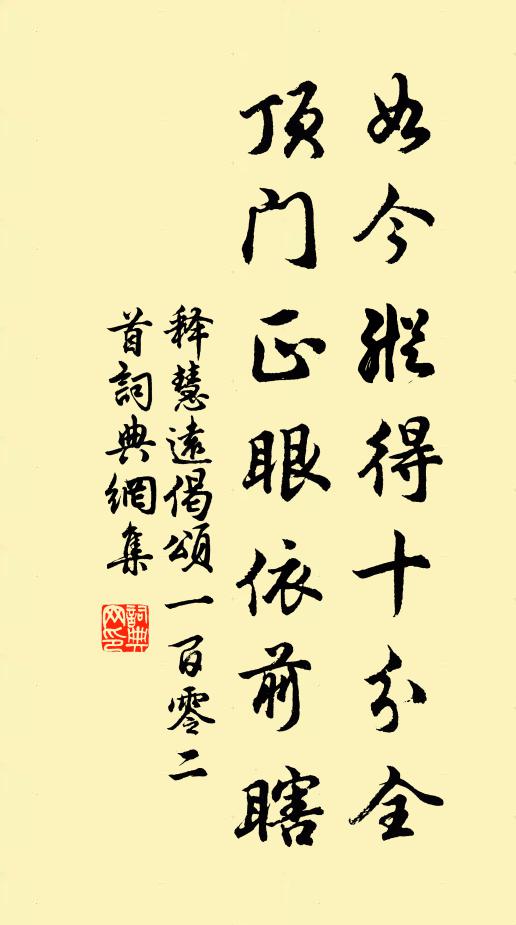 如今縱得十分全
頂門正眼依前瞎
释慧遠偈頌一百零二
首詞典網集
詞典
网印